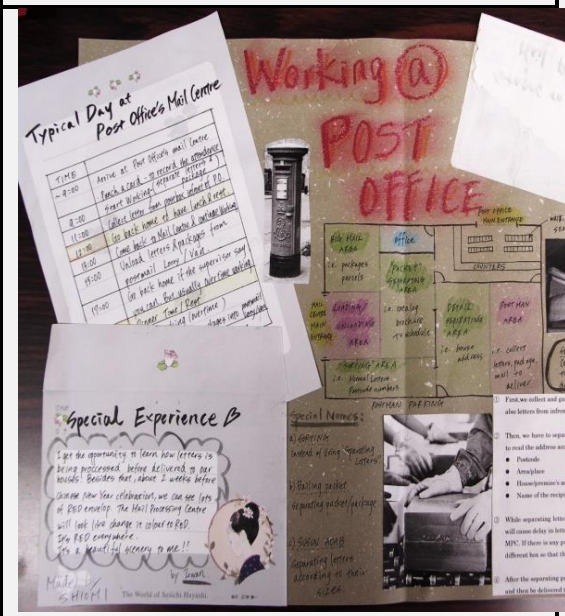 Working @
POST
OFFICE
Typical Day at
Post Office's Mail Centre
TIME
Arrive at Post Office's mail Centre
Punch a card - to record the attendance
Start Working, separate letters &
package
9:00
Collect letter from postbox infront of P.O.
11:00
Go back home & have lunch & rest
12:00
Come back to Mail Centre & continue Working
13:00
Unload letters & packages from
Lorry / Van
15:00
Go back home if the supervisor say
you can. But usually overtime working
17:00
Dinner Time / Rest
(overtime)
Special Experience
I get the opportunity to learn how letters is
being proccessed before delivered to our
house! Besides that, about 2 weeks before
Chinese New Year celebration, we can see lots
of RED envelop. The Mail Processing Centre
will look like change in colour to RED.
It's RED everywhere.
It's a beautiful scenery to me!!
by
Made by
SHIOMI
The World of Seiichi Hayashi.
POST OFFICE
MAIN ENTRANCE
BIG MAIL
AREA
i.e. packages
parcels
Office
COUNTERS
PACKET
SEPARATING
AREA
i.e. catalog
brochure
TV schedule
MAIL
CENTRE
MAIN
ENTRANCE
LOADING/
UNLOADING
AREA
DETAIL
SEPARATING
AREA
i.e. house
address
POSTMAN
AREA
i.e. collect
letters, package,
mail to
deliver
SORTING AREA
i.e. Normal Letters
Postcode numbers
POSTMAN PARKING
Special Names:
a) SORTING
instead of using "Separating
Letters"
b)
Separating packet/package
c) SUSUN
Separating letters
according to their
sizes.
① First, we collect and
also letters from
② Then, we have to
to read the address
• Postcode
• Area/place
• House/premise's
• Name of the
③ While separating
will cause delay in
MPC. If there is any
different box so that
④ After the separating
and then be delivered